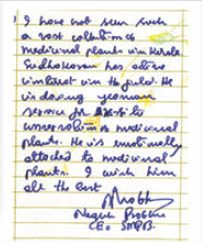 I have not seen such
a vast collection of
medicinal plants in Kerala.
Sudhakaran has
interest in the field. He
is doing yeoman
service for
conservation of medicinal
plants. He is emotionally
attached to medicinal
plants. I wish him
all the best
CEO SMPB.